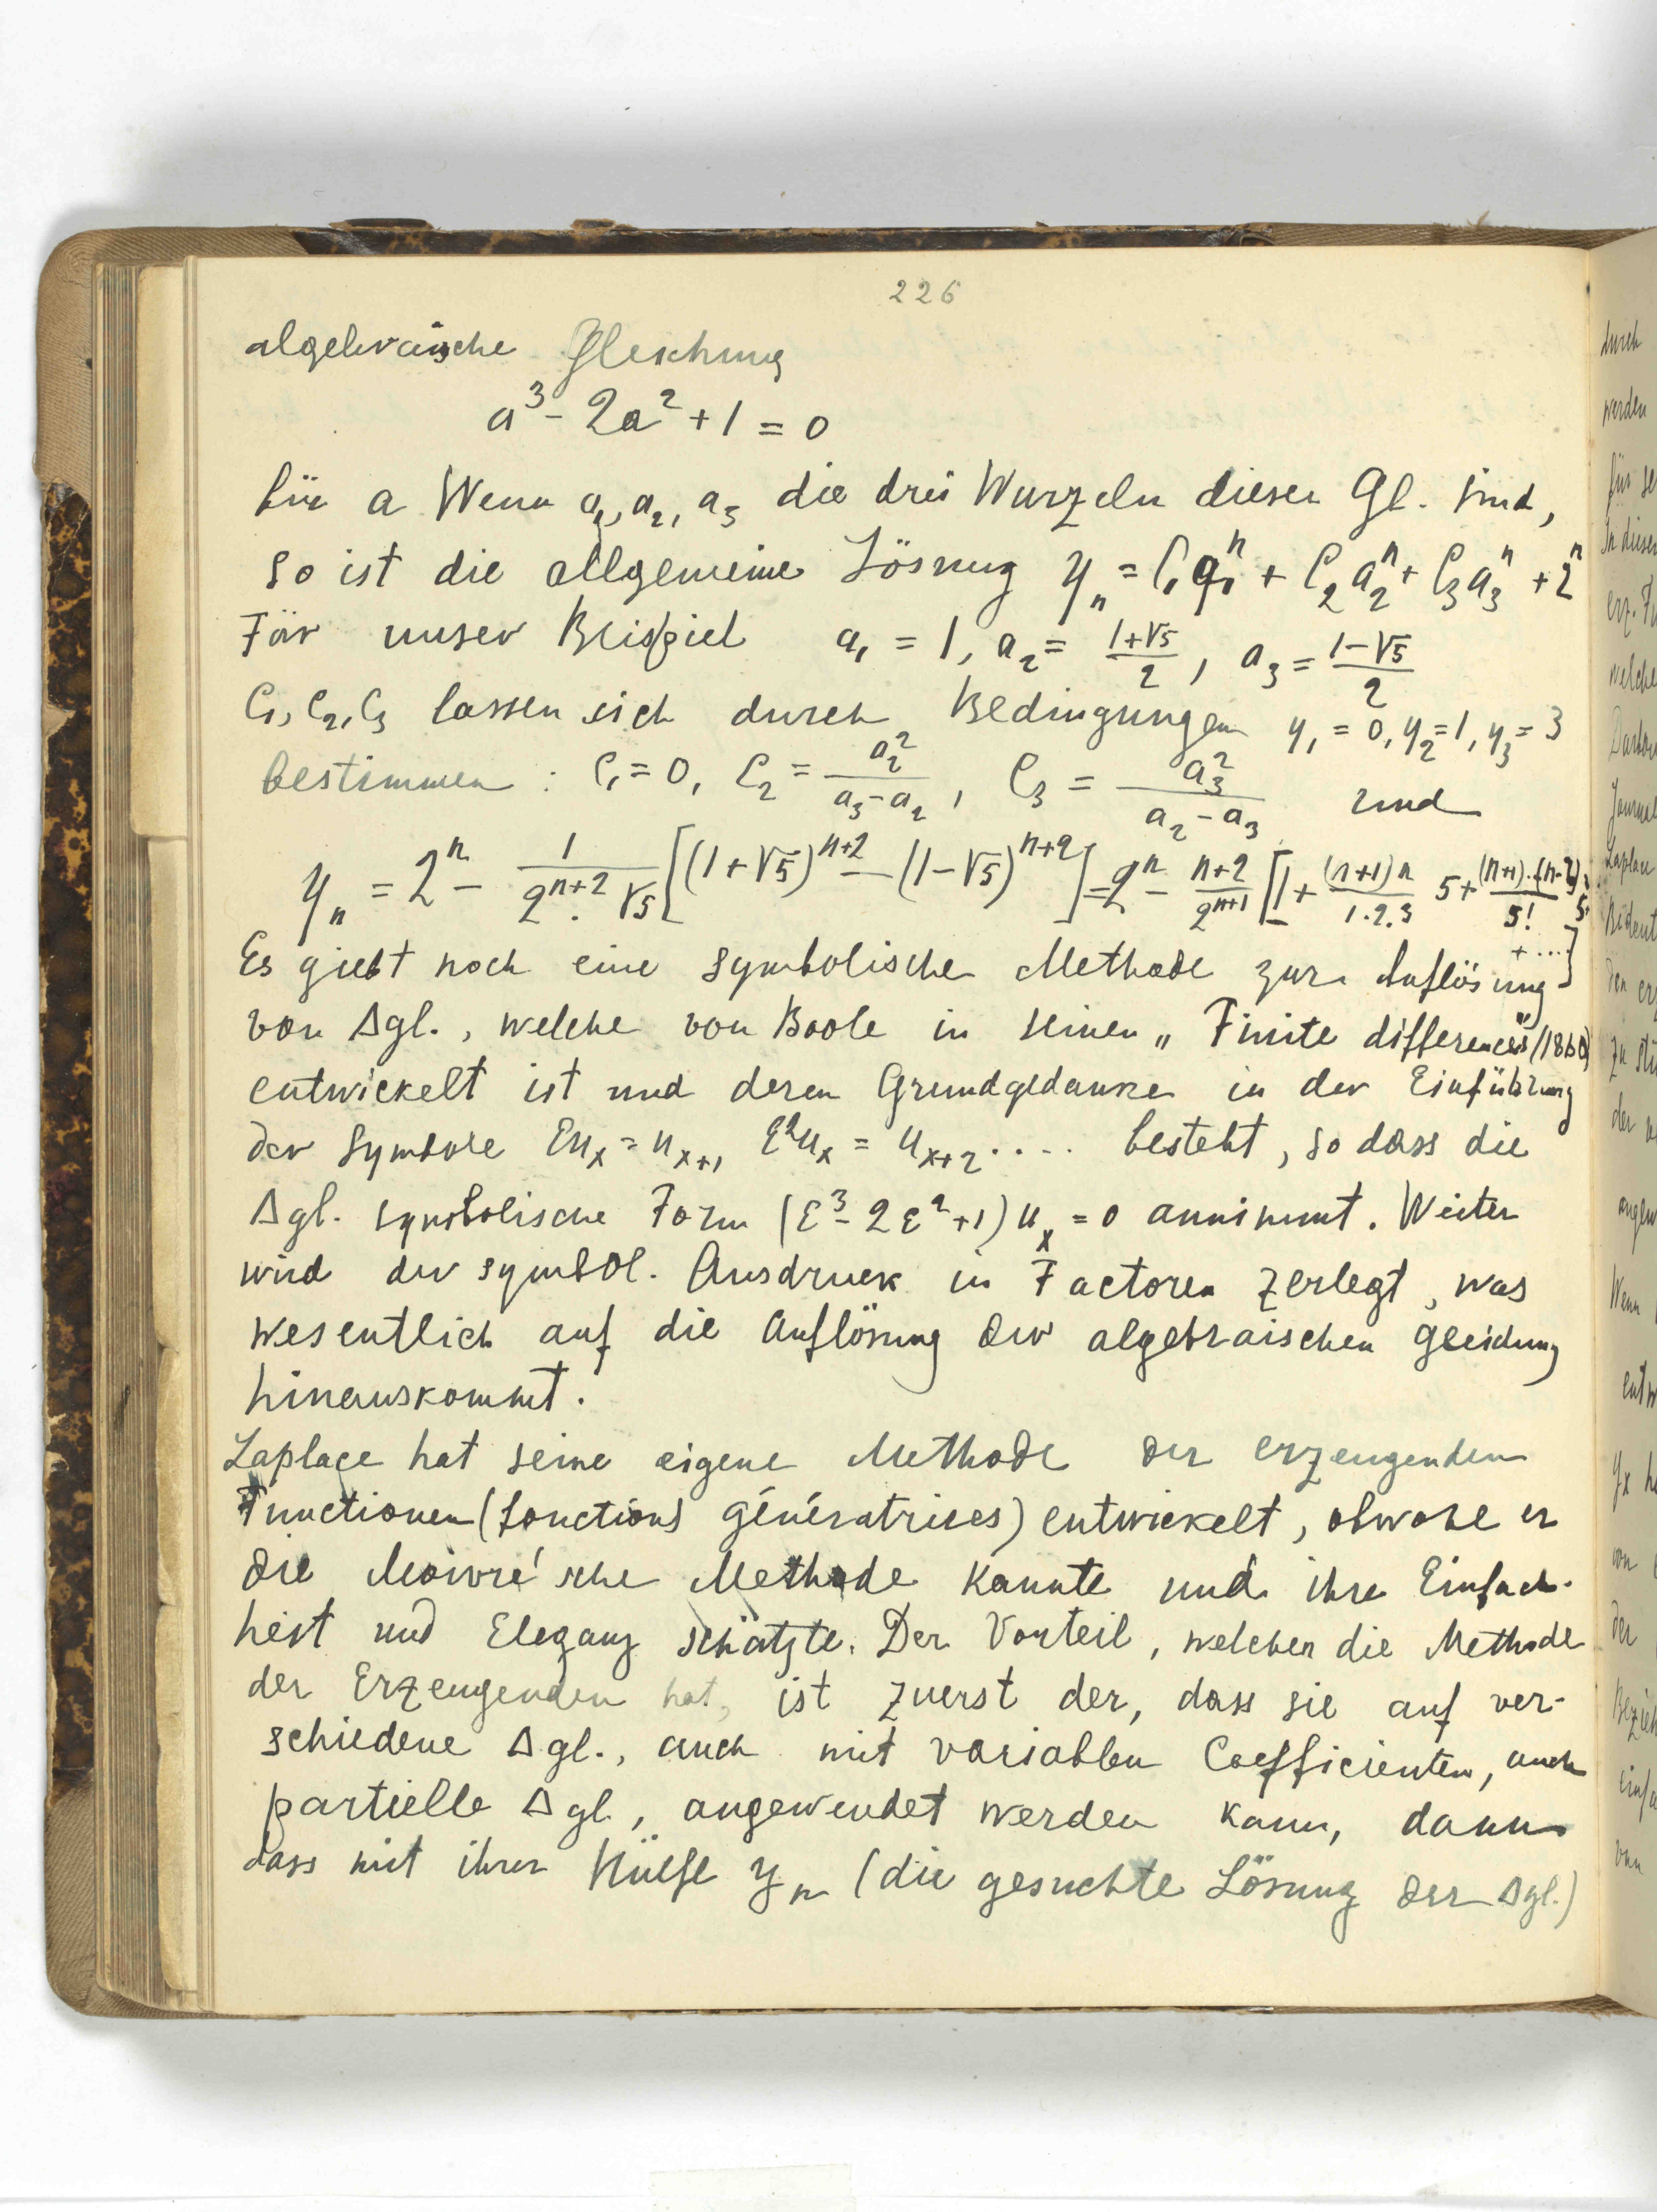 226
algebraische Gleichung
a³ - 2a² + 1 = 0
für a Wenn a₁, a₂, a₃ die drei Wurzeln dieser Gl. sind,
so ist die allgemeine Lösung yₙ = C₁a₁ⁿ + C₂a₂ⁿ + C₃a₃ⁿ + 2ⁿ
Für unser Beispiel a₁ = 1, a₂ = (1+√5)/2, a₃ = (1-√5)/2
C₁, C₂, C₃ lassen sich durch Bedingungen y₁ = 0, y₂ = 1, y₃ = 3
bestimmen : C₁ = 0, C₂ = a₂²/(a₃-a₂), C₃ = a₃²/(a₂-a₃) und
yₙ = 2ⁿ - 1/(2ⁿ⁺²·√5) [(1+√5)ⁿ⁺² - (1-√5)ⁿ⁺²] = 2ⁿ - (n+2)/2ⁿ⁺¹ [1 + (n+1)n/1.2.3 5 + (n+1)..(n-2)/5! 5²
+ ...]
Es giebt noch eine symbolische Methode zur Auflösung
von Δgl., welche von Boole in seinen „Finite differences" (1860)
entwickelt ist und deren Grundgedanke in der Einführung
der Symbole Euₓ = uₓ₊₁ E²uₓ = uₓ₊₂ .... besteht, so dass die
Δgl. symbolische Form (E³ - 2E² + 1) uₓ = 0 annimmt. Weiter
wird der symbol. Ausdruck in Factoren zerlegt, was
wesentlich auf die Auflösung der algebraischen Gleichung
hinauskommt.
Laplace hat seine eigene Methode der erzeugenden
Functionen (fonctions génératrices) entwickelt, obwohl er
die Moivre'sche Methode kannte und ihre Einfach-
heit und Eleganz schätzte. Der Vorteil, welchen die Methode
der Erzeugenden hat, ist zuerst der, dass sie auf ver-
schiedene Δgl., auch mit variablen Coefficienten, auch
partielle Δgl., angewendet werden kann, dann
dass mit ihrer Hülfe yₙ (die gesuchte Lösung der Δgl.)
durch
werden
In diesem
welche
Journal
Laplace
der
Wenn
von